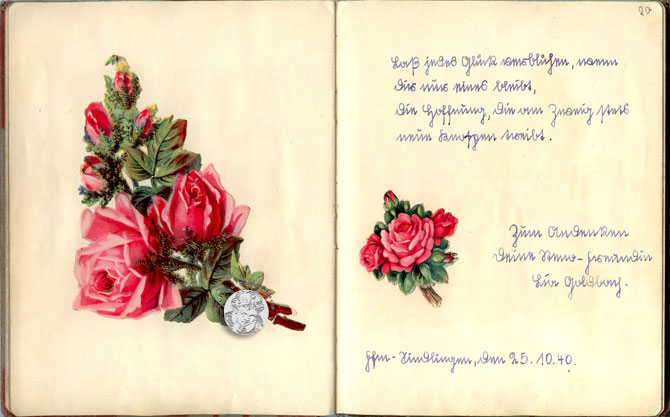 20
Laß jedes Glück verblühen, wenn
dir nur eines bleibt,
die Hoffnung, die am Zweig stets
neue Knospen treibt.
Zum Andenken
deine Steno-Freundin
Goldbach.
Ffm-Sindlingen, den 25.10.40.